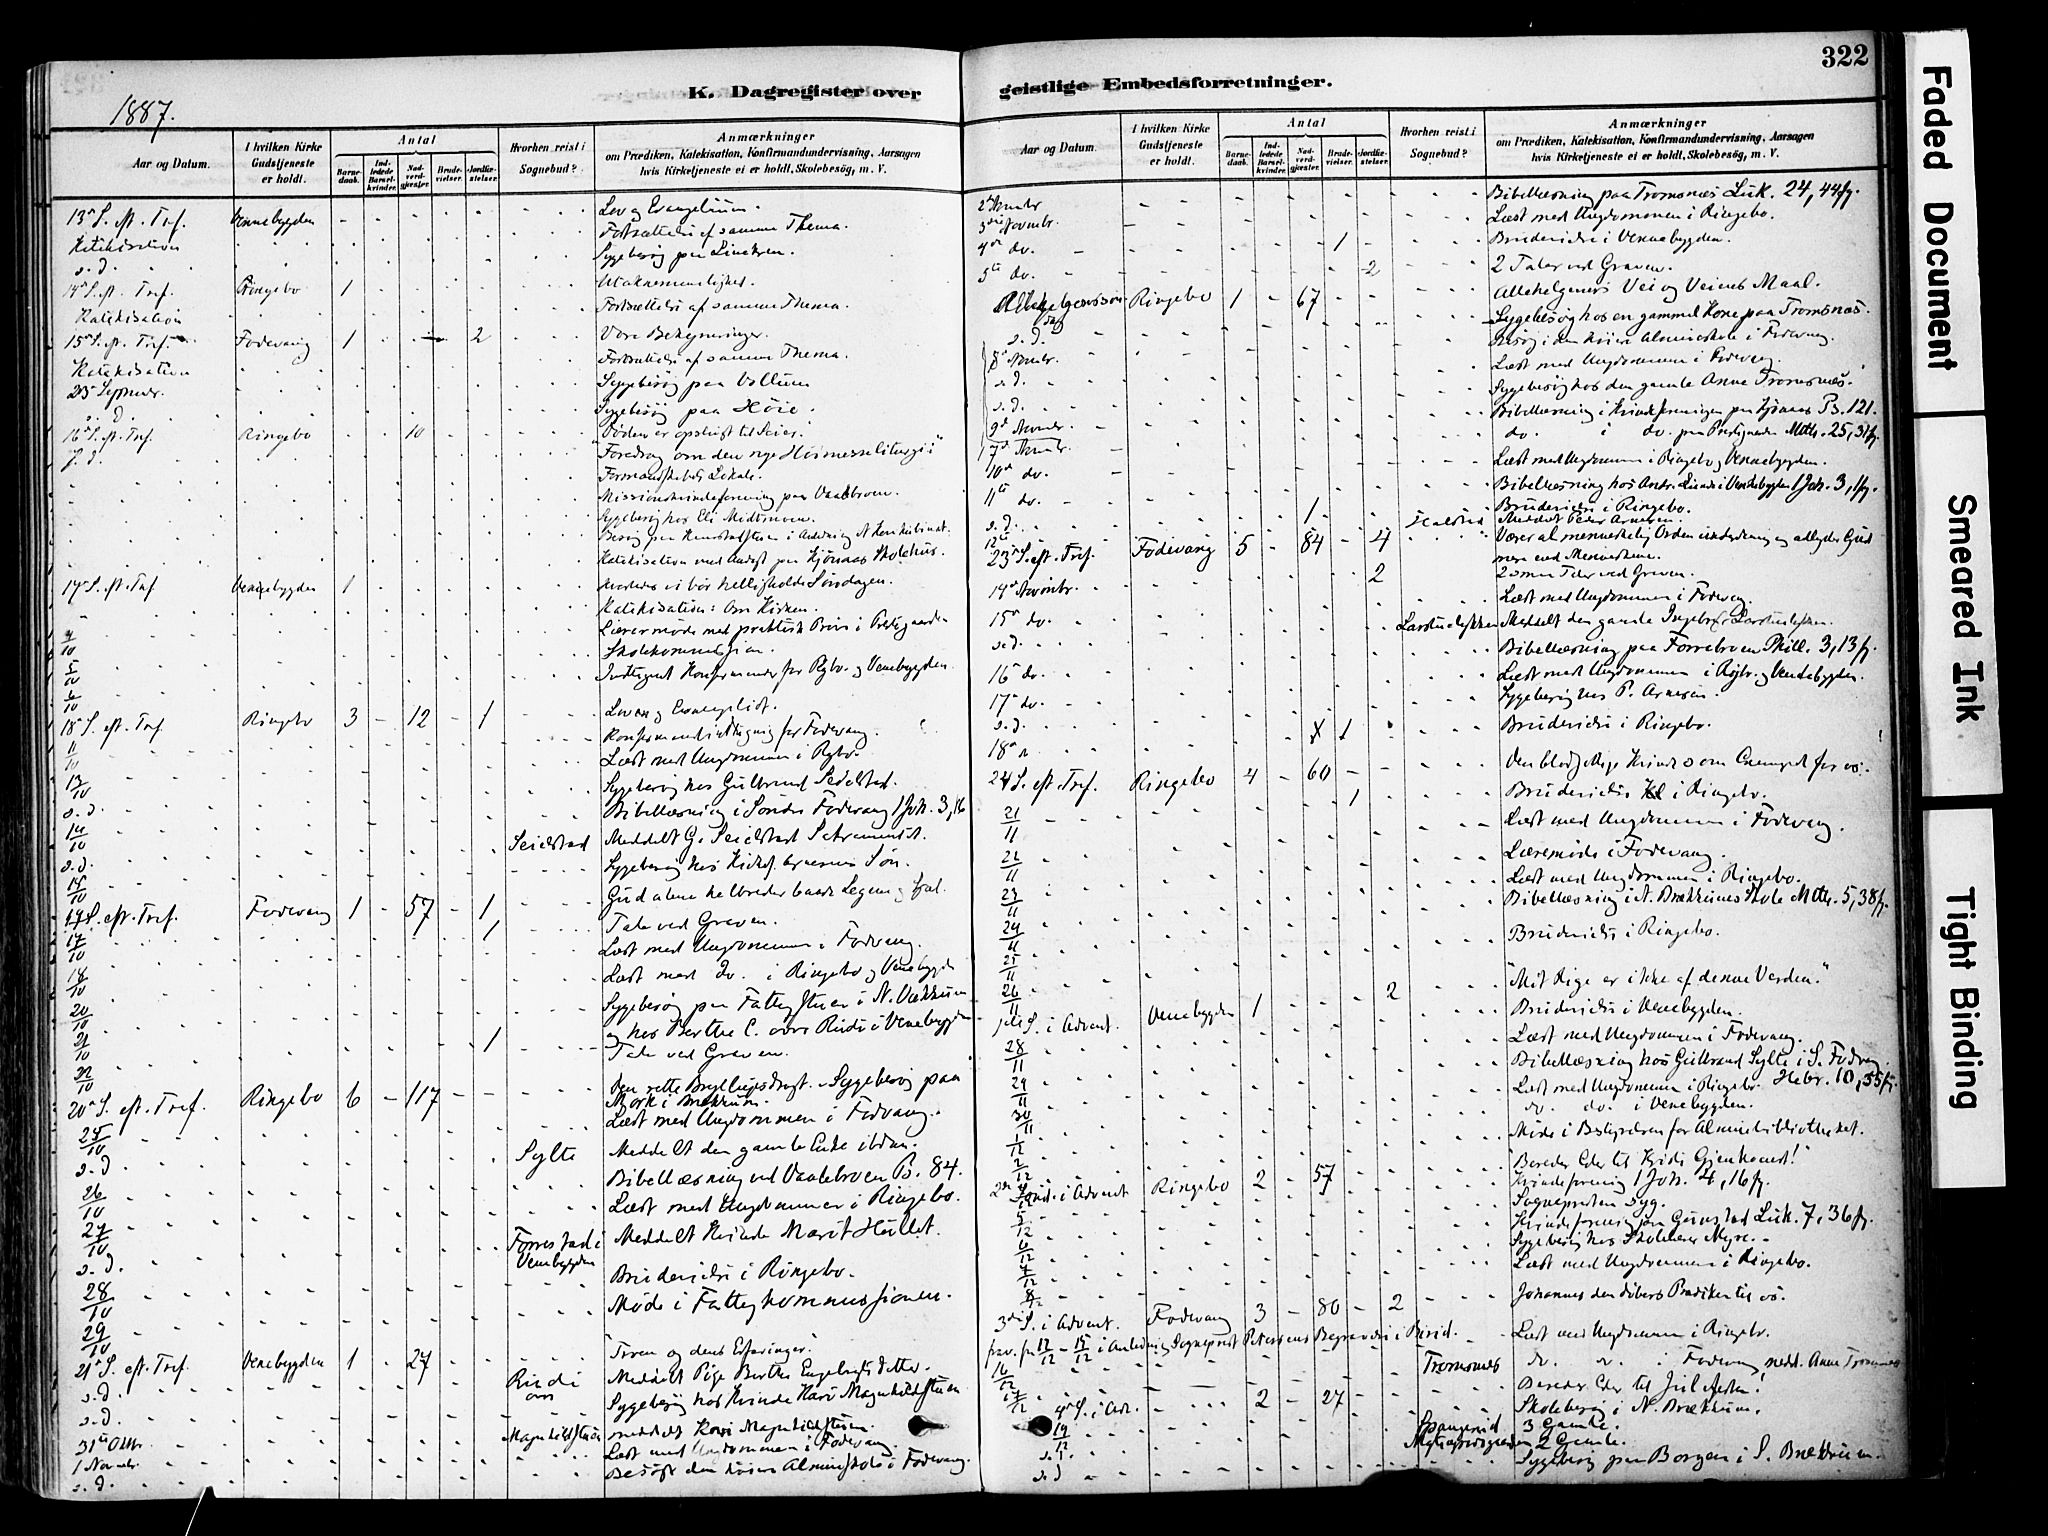 322
K. Dagregister over geistlige Embedsforretninger.
1887.
Aar og Datum.
I hvilken Kirke Gudstjeneste er holdt.
Antal
Barne- daab.
Ind- ledede Barsel- kvinder.
Nad- verd- gjæster.
Brude- vielser.
Jordfæ- stelser.
Hvorhen reist i Sognebud?
Anmærkninger
om Prædiken, Katekisation, Konfirmandundervisning, Aarsagen
hvis Kirketjeneste ei er holdt, Skolebesøg, m. V.
13de S. eft. Tref. Vennebygden Lov og Evangelium.
Katekisation Fortsættelse af samme Thema.
s. d. Sygebesøg paa
14de S. eft. Tref. Ringebo 1 Utaknemmelighed.
Katekisation Fortsættelse af samme Thema
15de S. eft. Tref. Fodevang 1 2 Vore Bekymringer.
Katekisation Fortsættelse af samme Thema.
23de Septembr. Sygebesøg paa Vollum
s. d. Sygebesøg paa Höie.
16de S. eft. Tref. Ringebo 10 Døden er opslugt til Seier.
s. d. Foredrag om den nye Höimesseliturgi i
Formandskabets Lokale.
Missionskvindeforening paa Vaalebroen.
Sygebesøg hos Eli
Katekisation med Andagt paa Kjönaas Skolehus.
17de S. eft. Tref Venebygden 1 Hvorledes vi bør helligholde Søndagen.
Katekisation: Om Kirken.
4/10 Lærermøde med praktisk Prøve i Prestegaarden
5/10 Skolekommission.
6/10 Indtegnet Konfirmander for Rgbo. og Venebygden.
18de S. eft. Tref. Ringebo 3 12 1 Lov og Evangelist.
11/10 Konfirmandindtegning for Fodevang.
13/10 Læst med Ungdommen i Rgbo.
s. d. Sygebesøg hos Gulbrand Seielstad.
14/10 Bibellæsning i Søndre Fodevang 1 Joh. 3, 16
s. d. Seielstad Meddelt G. Seielstad Sakramentet.
15/10 Sygebesøg hos Søn.
19de S. eft. Tref. Fodevang 1 57 1 Gud alene helbreder baade Legem og Sjæl.
17/10 1 Tale ved Graven.
18/10 Læst med Ungdommen i Fodvang.
20/10 Læst med do. i Ringebo og Venebygden
21/10 Sygebesøg paa Fattigstuen i N. Vækkum
og hos Berthe C. øvre Rindi i Venebygden
22/10 1 Tale ved Graven.
20de S. eft. Tref. Ringebo 6 117 Den rette Bryllupsdragt. Sygebesøg paa
Mork i Brækkum.
25/10 Læst med Ungdommen i Fodvang.
s. d. Sylte Meddelt den gamle Enke ibdm.
26/10 Bibellæsning ved Vaalebroen Ps. 84.
27/10 Læst med Ungdommen i Ringebo.
s. d. Forrestad i Venebygden Meddelt Kvinde Marit Hullet.
28/10 Brudevielse i Ringebo.
29/10 Møde i Fattigkommissionen.
21de S. eft. Tref. Venebygden 1 27 Troen og dens Erfaringer.
s. d. Rindi øvre Meddelt Pige Berthe Engebretsdatter.
s. d. Sygebesøg hos Kvinde Kari Magnhildstuen
31te Oktbr. Magnhildstuen meddelt Kari Magnhildstuen.
1 Novembr. Læst med Ungdommen i Fodevang
s. d. Besøgt den høiere Alminskole i Fodevang.
Aar og Datum.
I hvilken Kirke Gudstjeneste er holdt.
Antal
Barne- daab.
Ind- ledede Barsel- kvinder.
Nad- verd- gjæster.
Brude- vielser.
Jordfæ- stelser.
Hvorhen reist i Sognebud?
Anmærkninger
om Prædiken, Katekisation, Konfirmandundervisning, Aarsagen
hvis Kirketjeneste ei er holdt, Skolebesøg, m. V.
2den Novmbr Bibellæsning paa Tromsnæs Luk. 24, 44fg.
3die Novmbr. Læst med Ungdommen i Ringebo.
4de do. 1 Brudevielse i Vennebygden.
5te do. 2 2 Taler ved Graven.
Allehelgenssøn dag Ringebo 1 67 Allehelgeners Vei og Veiens Maal.
s. d. Sygebesøg hos en gammel Kone paa Tromsnæs.
8de Novmbr. Besøg i den høiere Alminskole i Fodevang.
s. d. Læst med Ungdommen i Fodevang.
s. d. Sygebesøg hos den gamle Anne Tromsnæs.
9de Novmbr. Bibellæsning i Kvindeforeningen paa Kjönaas Ps. 121.
do. i do. paa Prestgaarden Mtth. 25, 31fg.
10de do. Læst med Ungdommen i Ringebo og Vennebygden.
11te do. Bibellæsning hos i Venebygden 1 Joh. 3, 1fg.
s. d. 1 Brudevielse i Ringebo.
12te Meddelt Peder Arnesen.
23de S. eft. Tref. Fodevang 5 84 4 Være al menneskelig Orden underdanig og adlyde Gud
mere end Menneskene.
2 2 Taler ved Graven.
14de Novmbr. Læst med Ungdommen i Fodevang.
15de do. Larstuelykken Meddelt den gamle Ingeborg Larstuelykken.
s. d. Bibellæsning paa Forrebroen Phill. 3, 13fg.
16de do. Læst med Ungdommen i Rgbo. og Vennebygden.
17de do. Sygebesøg hos P. Arnesen.
s. d. 1 Brudevielse i Ringebo.
18de
24de S. eft. Tref. Ringebo 4 60 Den blodsottige Kvinde som Exempel for os.
21/11 1 Brudevielse i Ringebo.
22/11 Læst med Ungdommen i Fodevang.
23/11 Læremøde i Fodevang.
24/11 Læst med Ungdommen i Ringebo.
25/11 Bibellæsning i N. Brækkums Skole Mtth. 5, 38fg.
26/11 Brudevielse i Ringebo.
1ste S. i Advent. Venebygden 1 2 "Mit Rige er ikke af denne Verden."
28/11 Brudevielse i Venebygden.
29/11 Læst med Ungdommen i Fodevang.
30/11 Bibellæsning hos Gulbrand Sylte i S. Fodvang
1/12 Læst med Ungdommen i Ringebo. Hebr. 10, 35fg.
2/12 do. do. i Venebygden.
Møde i Bestyrelsen for Alminbibliotheket.
2den Sønd. i Advent Ringebo 2 57 "Bereder Eder til Kristi Gjenkomst!"
5/12 Kvindeforening 1 Joh. 4, 16fg.
6/12 Sognepresten syg.
7/12 Kvindeforening paa Gunstad Luk. 7, 36fg.
8/12 Sygebesøg hos Skolelærer Myre.
Læst med Ungdommen i Ringebo.
3die S. i Advent. Fodevang 3 80 2 Johannes den døbers Prædiken til os.
frav. fra 12/12 - 15/12 i Anledning Sogneprest Petersens Begravelse i Birid.
Læst med Ungdommen i Ringebo.
16/12 Tromsnes do. do. i Fodevang medd. Anne Tromsnes
4de S. i Adv. 2 27 Bereder Eder til Julefesten!
19/12 Skolebesøg i N. Brækkum.
s. d. 3 Gamle.
2 Gamle.
s. d. Sygebesøg paa Borgen i S. Brækkum.
Faded Document
Smeared Ink
Tight Binding